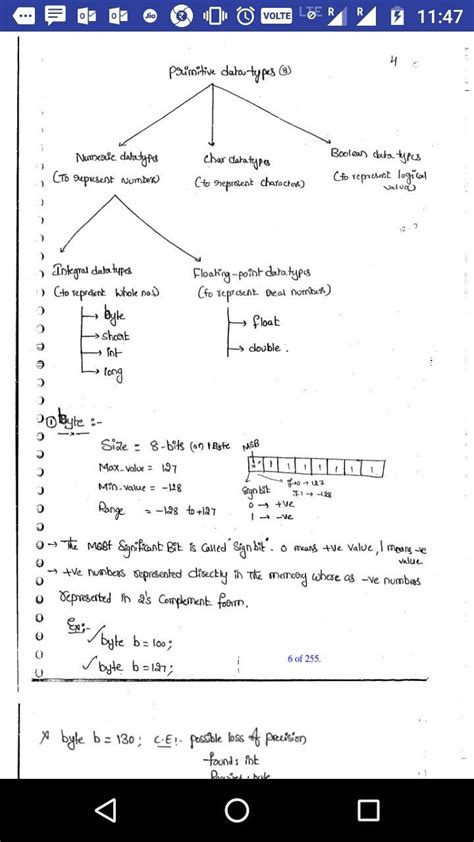 Jio
VOLTE
LTE
R
R
11:47
4
Primitive data-types (8)
Numeric datatypes
(To represent numbers)
char datatypes
(to represent characters)
Boolean data types
(to represent logical
values)
Integral datatypes
(to represent whole nos)
→ byte
→ short
→ int
→ long
Floating-point datatypes
(to represent real numbers)
→ float
→ double.
① byte :-
Size = 8-bits (or) 1 Byte
Max-value = 127
Min-value = -128
Range = -128 to +127
MSB
1 1 1 1 1 1 1
Sign bit
0 → +ve
1 → -ve
→ 127
→ -128
→ The Most Significant Bit is called "Sign bit". 0 means +ve value, 1 means -ve
value
→ +ve numbers represented directly in the memory where as -ve numbers
represented in 2's complement form.
Ex:-
✓ byte b=100;
✓ byte b=127;
6 of 255.
x byte b=130; C.E:- possible loss of precision
found: int